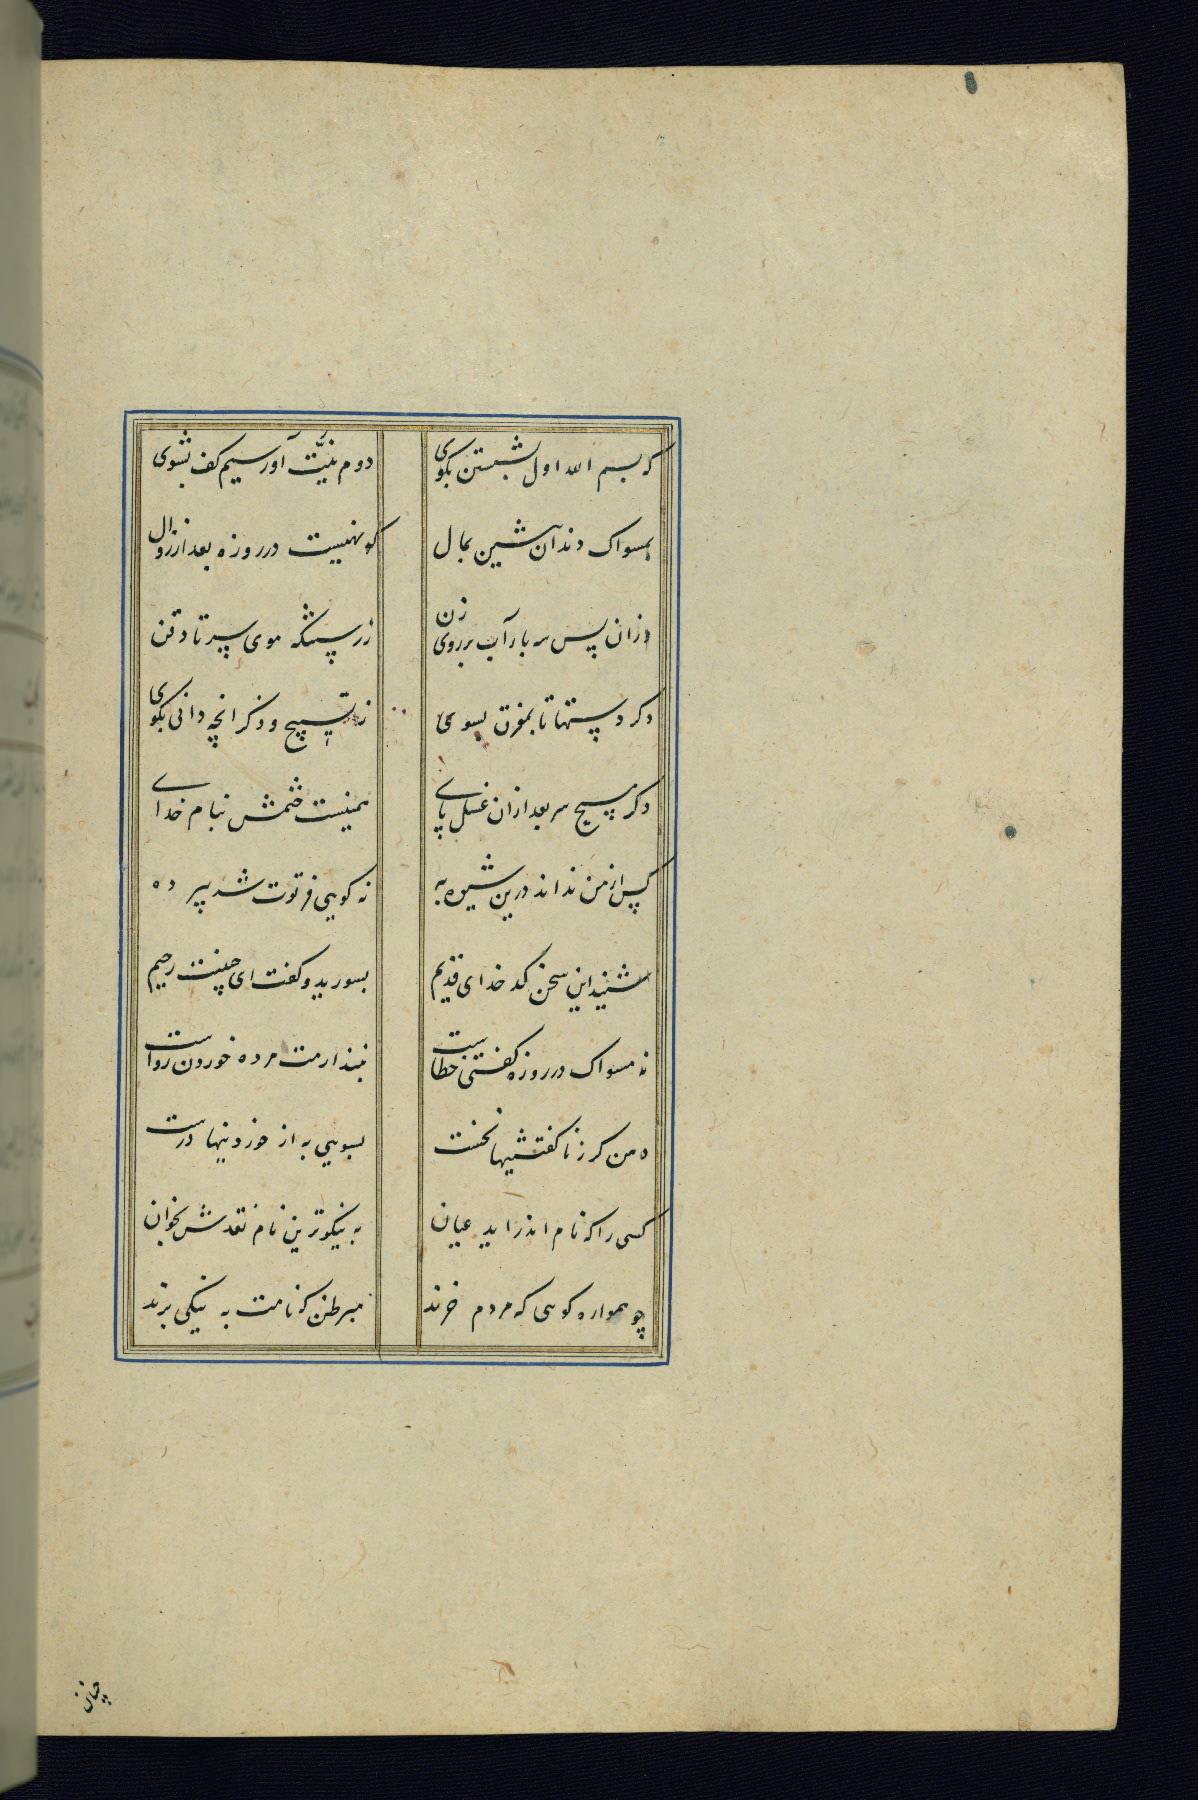 که بسم الله اول بسنت بگوی
دوم نیت آور سیم کف بشوی
بمسواک دندان پیشین بمال
که نهیست در روزه بعد از زوال
وزان پس سه بار آب بر روی زن
ز رستنگه موی سر تا ذقن
دگر دستها تا بمرفق بشوی
ز تسبیح و ذکر آنچه دانی بگوی
دگر مسح سر بعد ازان غسل پای
همینست ختمش بنام خدای
کس از من نداند درین شیوه به
نه گویی فرتوت شد پیر ده
شنید این سخن کدخدای قدیم
بشورید و گفت ای خبیث رجیم
نه مسواک در روزه گفتی خطاست
بنی آدم مرده خوردن رواست
دهن گر ز ناگفتنیها نخست
بشویی به از خوردنیها درست
کسی را که نام اندر آید عیان
به نیکوترین نام نقدش بخوان
چو همواره گویی که مردم خرند
مبر ظن که نامت به نیکی برند
چنان